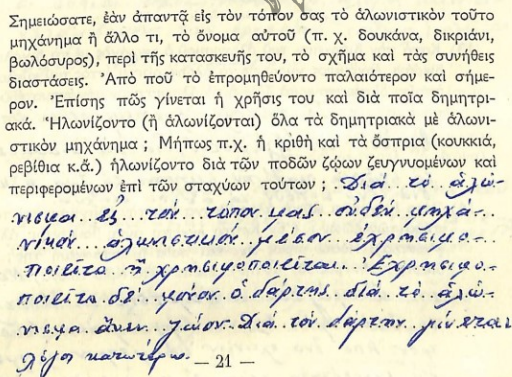 Σημειώσατε, ἐὰν ἀπαντᾷ εἰς τὸν τόπον σας τὸ ἁλωνιστικὸν τοῦτο
μηχάνημα ἢ ἄλλο τι, τὸ ὄνομα αὐτοῦ (π. χ. δουκάνα, δικριάνι,
βωλόσυρος), περὶ τῆς κατασκευῆς του, τὸ σχῆμα καὶ τὰς συνήθεις
διαστάσεις. Ἀπὸ ποῦ τὸ ἐπρομηθεύοντο παλαιότερον καὶ σήμε-
ρον. Ἐπίσης πῶς γίνεται ἡ χρῆσις του καὶ διὰ ποῖα δημητρι-
ακά. Ἡλωνίζοντο (ἢ ἁλωνίζονται) ὅλα τὰ δημητριακὰ μὲ ἁλωνι-
στικὸν μηχάνημα ; Μήπως π.χ. ἡ κριθὴ καὶ τὰ ὄσπρια (κουκκιά,
ρεβίθια κ.ἄ.) ἡλωνίζοντο διὰ τῶν ποδῶν ζῴων ζευγνυομένων καὶ
περιφερομένων ἐπὶ τῶν σταχύων τούτων ; Διά τό ἁλώ-
νισμα εἰς τόν τόπον μας οὐδέν μηχα-
νικόν ἁλωνιστικόν μέσον ἐχρησιμο-
ποιεῖτο ἤ χρησιμοποιεῖται. Ἐχρησιμο-
ποιεῖτο δέ μόνον ὁ δάρτης διά τό ἁλώ-
νισμα ἄνευ ζώων. Διά τόν δάρτην γίνεται
λόγος κατωτέρω.
— 21 —